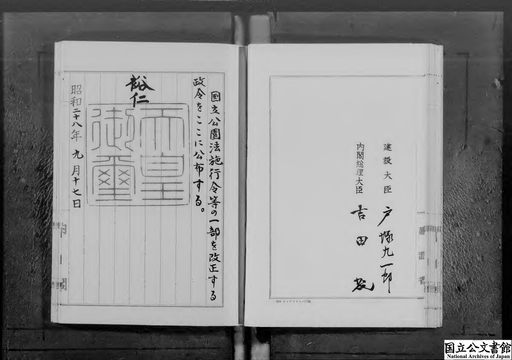 国立公園法施行令等の一部を改正する
政令をここに公布する。
裕仁
天皇御璽
昭和二十八年九月十七日
建設大臣 戸塚九一郎
内閣総理大臣 吉田茂
国立公文書館
National Archives of Japan